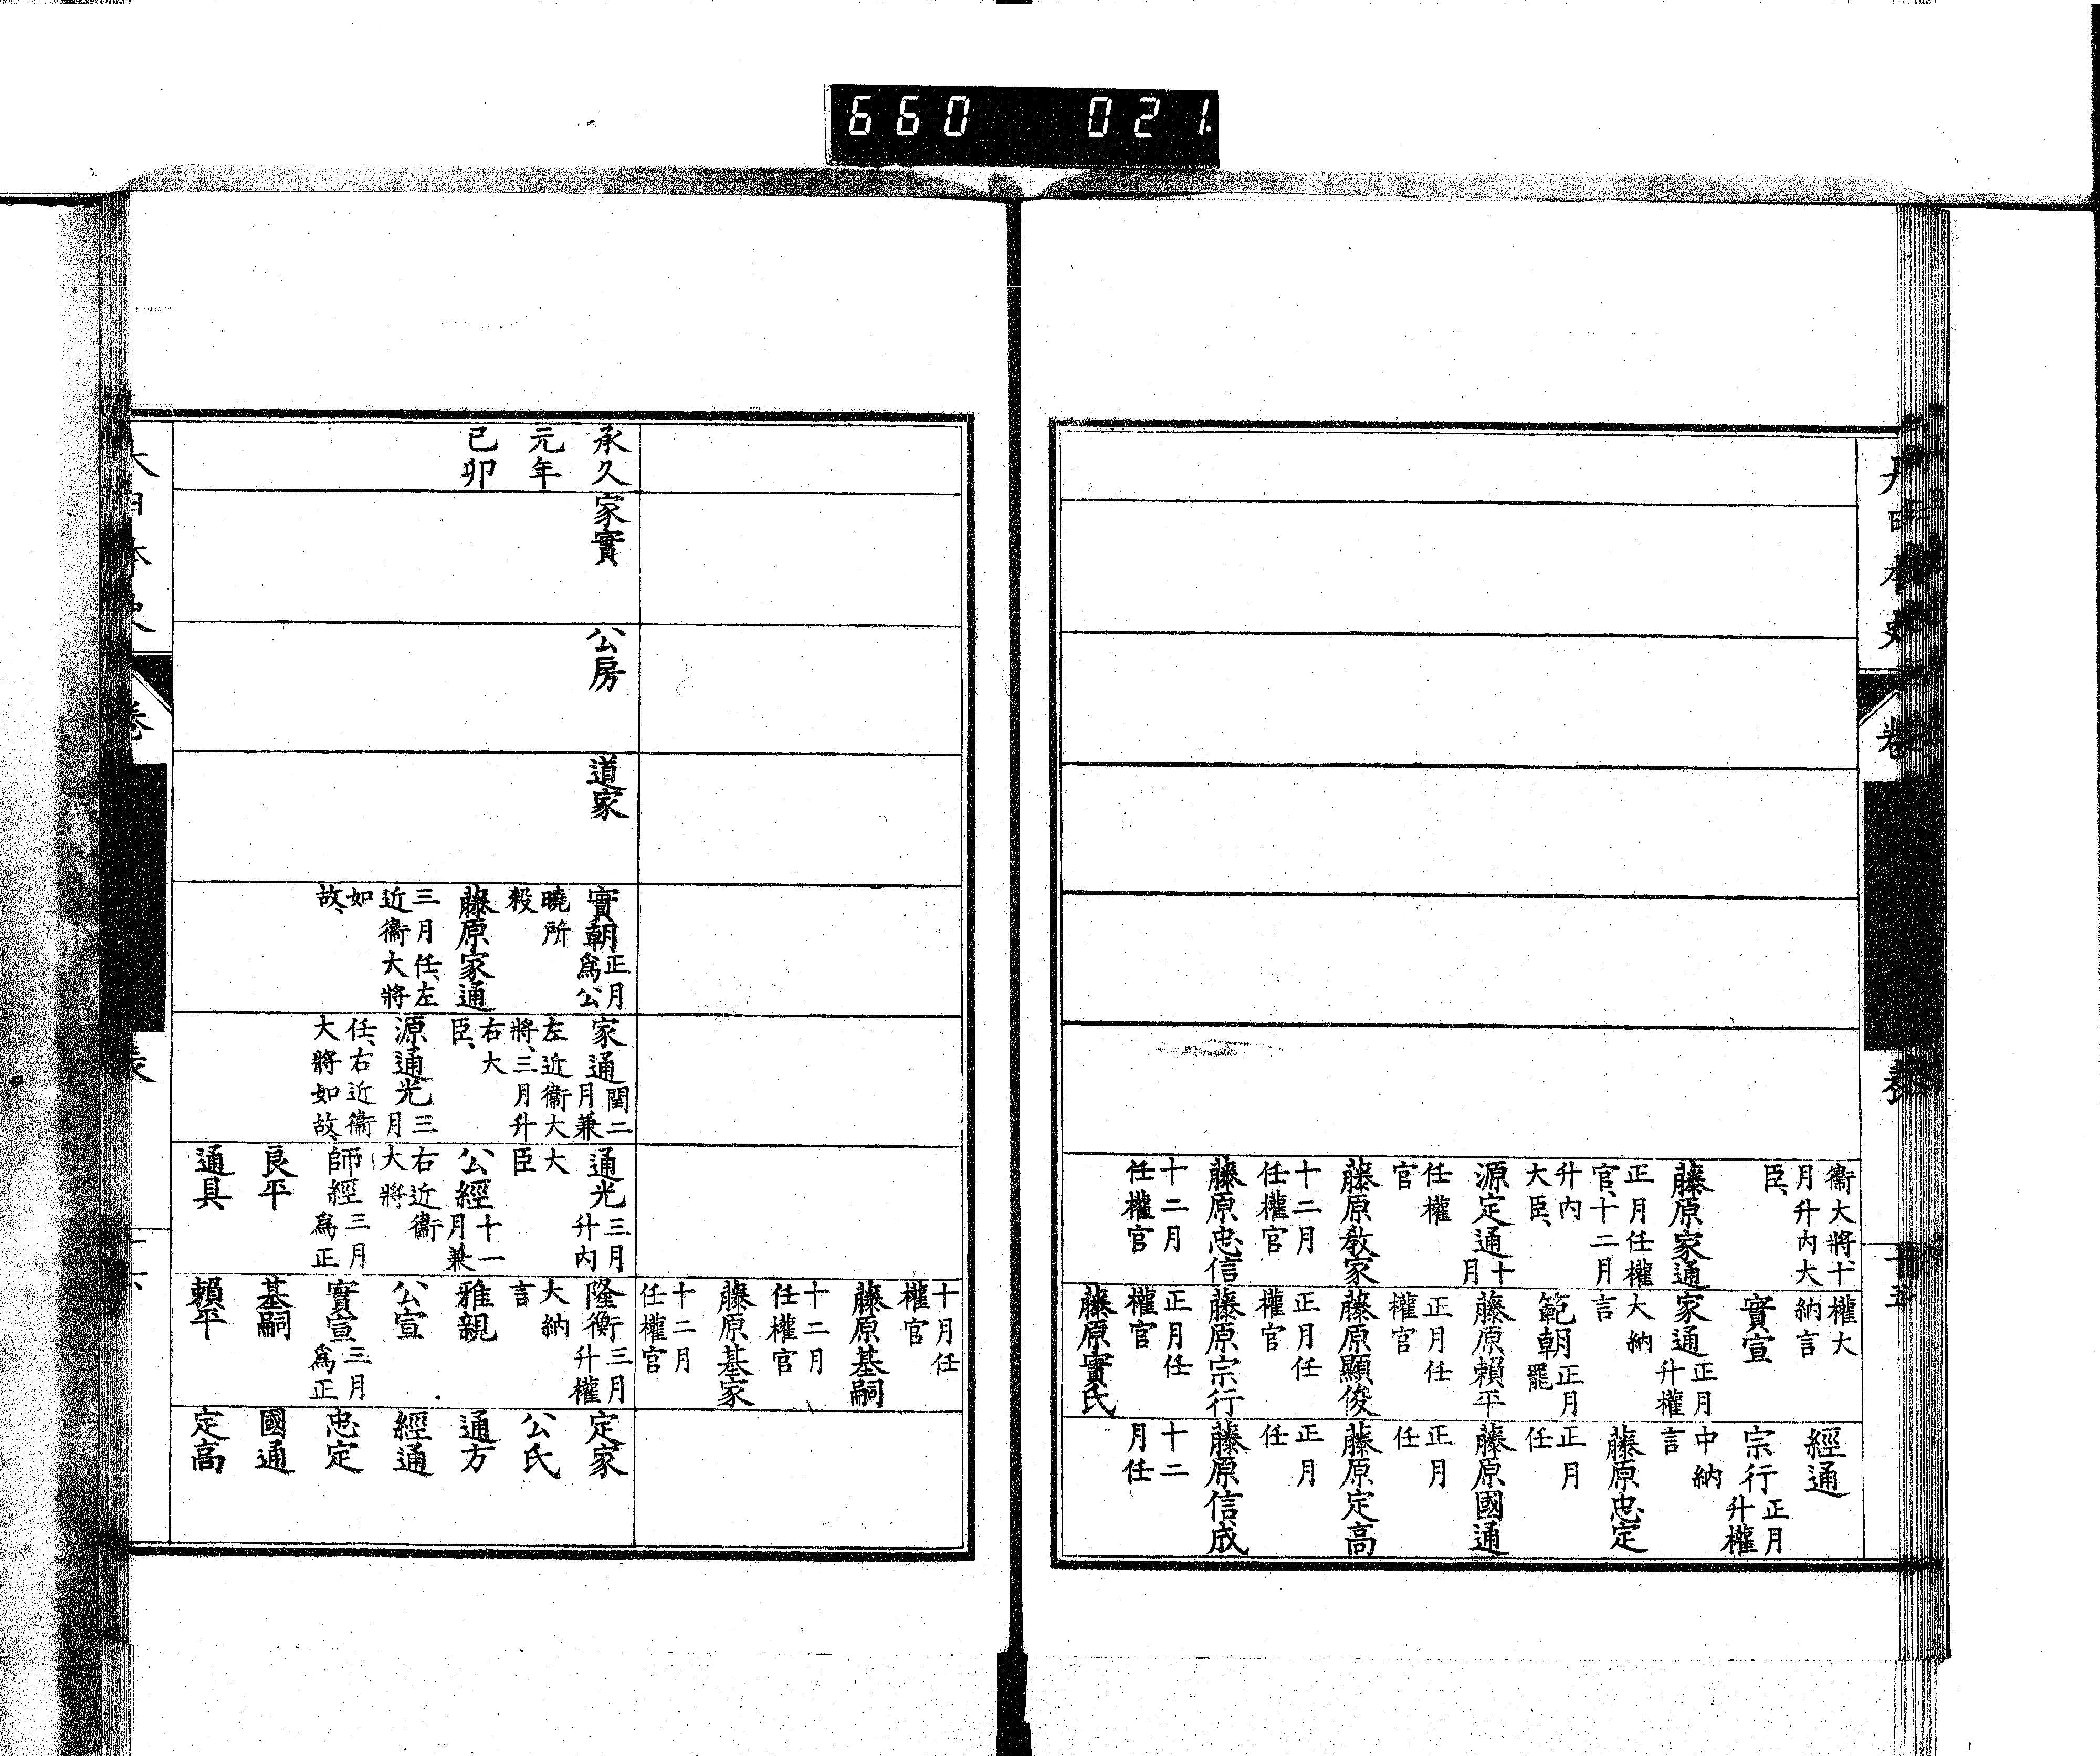 660 021
衞大將、十
月升內大
臣、
藤原家通
正月任權
官、十二月
升內
大臣、
源定通十
月
任權
官
藤原教家
十二月
任權官
藤原忠信
十二月
任權官
權大
納言
實宣
家通正月
升權
大納
言
範朝正月
罷
藤原賴平
正月任
權官
藤原顯俊
正月任
權官
藤原宗行
正月任
權官
藤原實氏
經通
宗行正月
升權
中納
言
藤原忠定
正月
任
藤原國通
正月
任
藤原定高
正月
任
藤原信成
十二
月任
十月任
權官
藤原基嗣
十二月
任權官
藤原基家
十二月
任權官
承久
元年
己卯
家實
公房
道家
實朝正月
爲公
曉所
殺
藤原家通
三月任、左
近衞大將
如
故、
家通閏二
月兼
左近衞大
將、三月升
右大
臣、
源通光三
月
任、右近衞
大將如故、
通光三月
升內
大
臣
公經十一
月兼
右近衞
大將
師經三月
爲正
良平
通具
隆衡三月
升權
大納
言
雅親
公宣
實宣三月
爲正
基嗣
賴平
定家
公氏
通方
經通
忠定
國通
定高